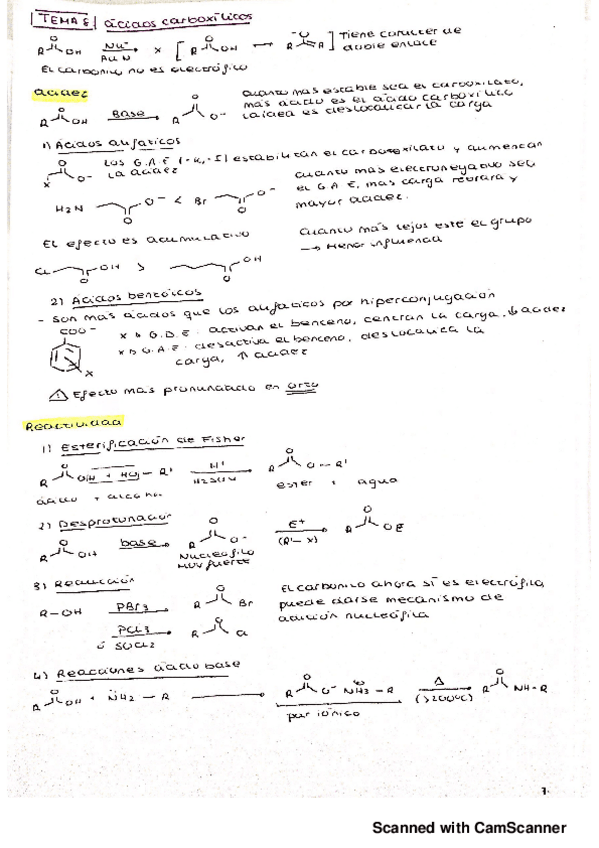 TEMA 8 ácidos carboxílicos
R O OH Nu⁻ x [ R O OH ↔ R ⁻O R ] Tiene caracter de
doble enlace
El carbonilo no es electrófilo
acidez
R O OH Base → R O O⁻ cuanto mas estable sea el carboxilato,
más ácido es el ácido carboxílico
la idea es deslocalizar la carga
1) Ácidos alifáticos
X O O⁻ Los G.A.E (-K, -I) estabilizan el carboxilato y aumentan
la acidez
cuanto mas electronegativo sea
el G.A.E, mas carga retirará y
mayor acidez.
H2N O⁻ O < Br O⁻ O
El efecto es acumulativo
cuanto más lejos este el grupo
→ Menor influencia
Cl OH O > OH O
2) Ácidos benzóicos
- son más ácidos que los alifaticos por hiperconjugación
COO⁻ X
X → G.D.E: activan el benceno, centran la carga, ↓ acidez
X → G.A.E: desactiva el benceno, deslocaliza la
carga, ↑ acidez
⚠ Efecto más pronunciado en orto
Reactividad
1) Esterificación de Fisher
R O OH + HO - R' H⁺ H2SO4 → R O O-R'
ácido + alcohol ester + agua
2) Desprotonación
R O OH base → R O O⁻ E⁺ (R'-X) → R O OE
Nucleófilo
muy fuerte
3) Reacción
R-OH PBr3 → R O Br
PCl3 ó SOCl2 → R O Cl
El carbonilo ahora sí es electrófilo,
puede darse mecanismo de
adición nucleófila
4) Reacciones ácido base
R O OH + NH2 - R → R O O⁻ NH3 - R Δ (>200ºC) → R O NH-R
par iónico
7.
Scanned with CamScanner